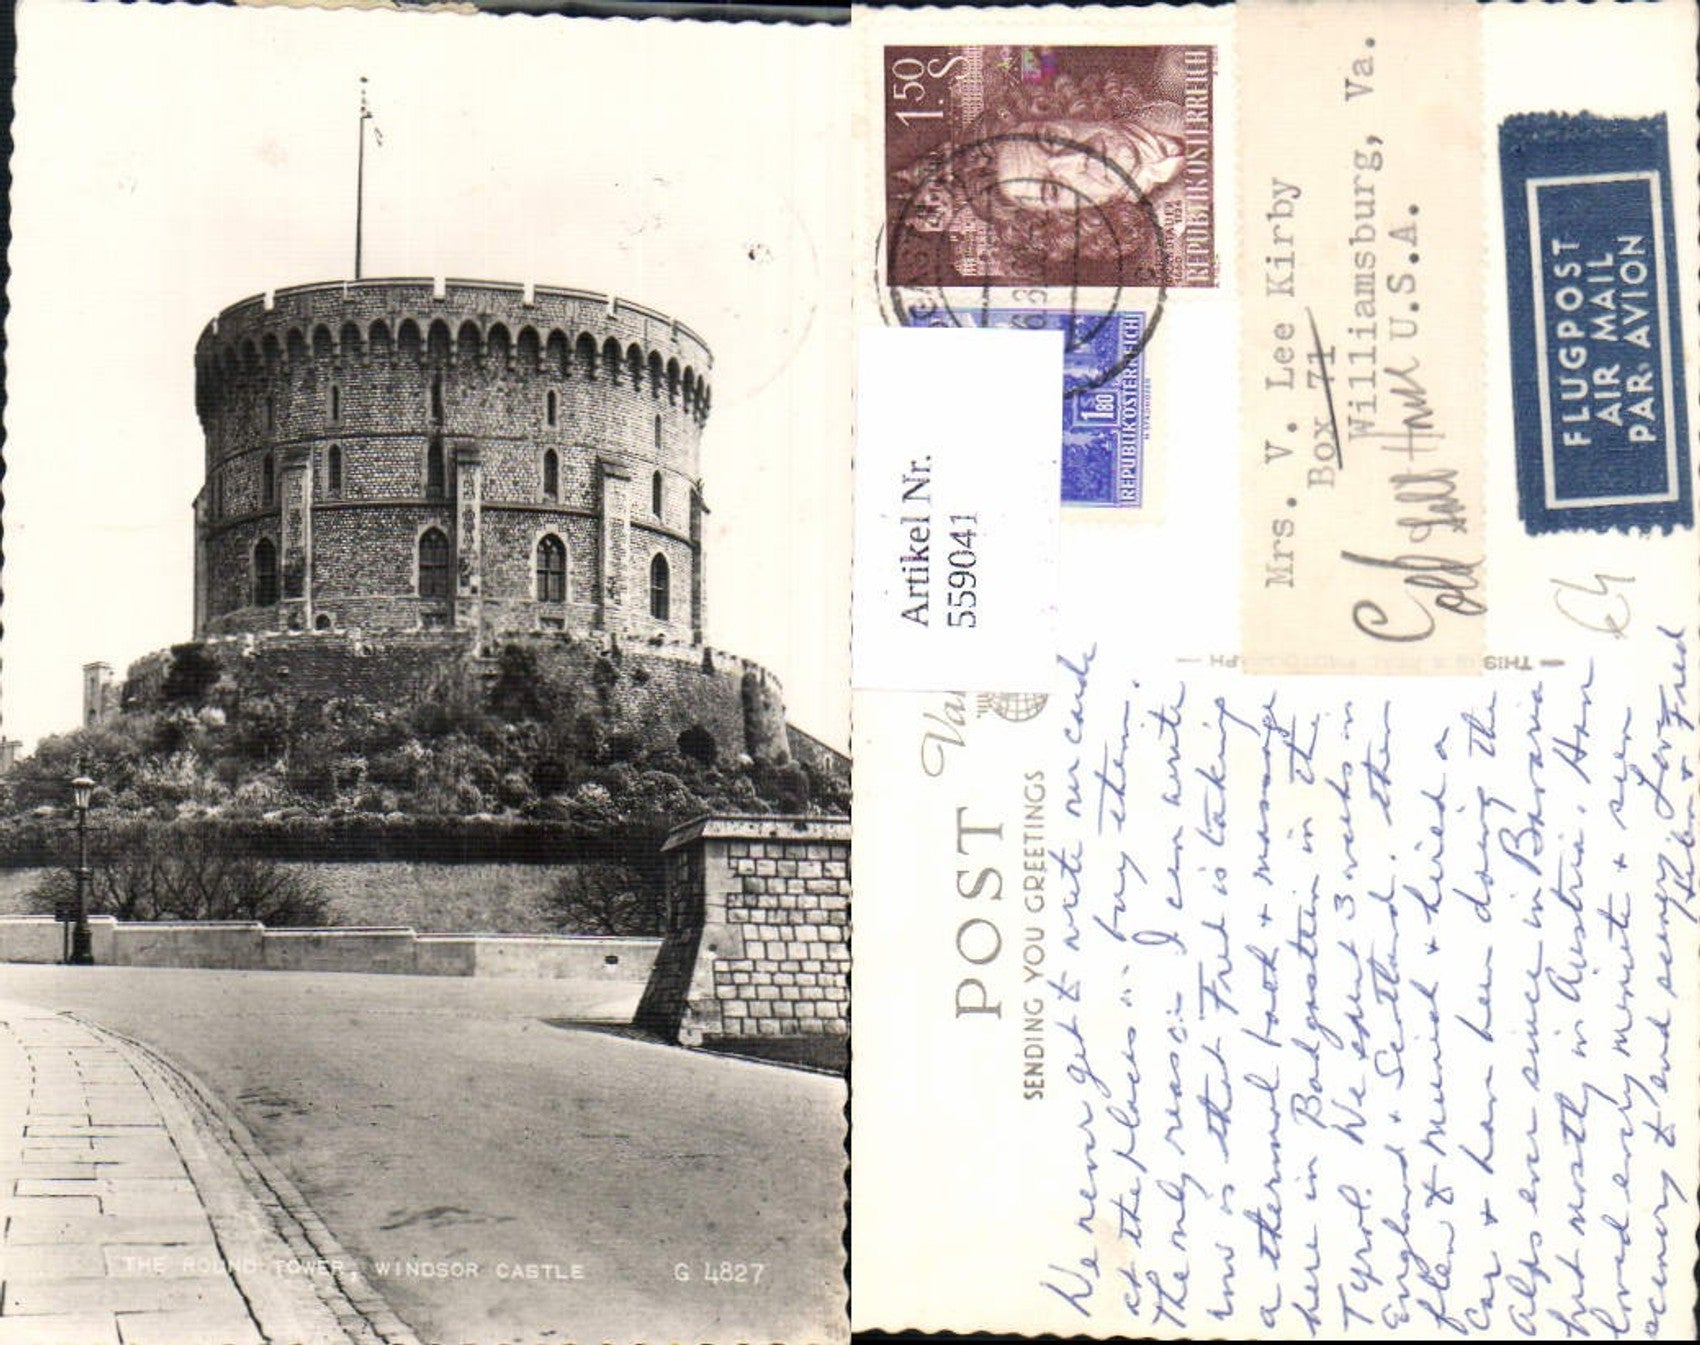 THE ROUND TOWER, WINDSOR CASTLE
G 4827
1.50 S
REPUBLIK ÖSTERREICH
1S 80
REPUBLIK ÖSTERREICH
Artikel Nr.
559041
Mrs. V. Lee Kirby
Box 71
Williamsburg, Va.
U.S.A.
FLUGPOST
AIR MAIL
PAR AVION
THIS IS A REAL PHOTOGRAPH
Va
POST
SENDING YOU GREETINGS
We never get to write our cards
at the places we buy them.
The only reason I can write
now is that Fred is taking
a thermal bath + massage
here in Badgastein in the
Tyrol. We spent 3 weeks in
England + Scotland, then
flew to Munich + hired a
car + have been doing the
Alps ever since in Bavaria
but mostly in Austria. Have
loved every minute + seen
scenery to end scenery. Love
Helen + Fred